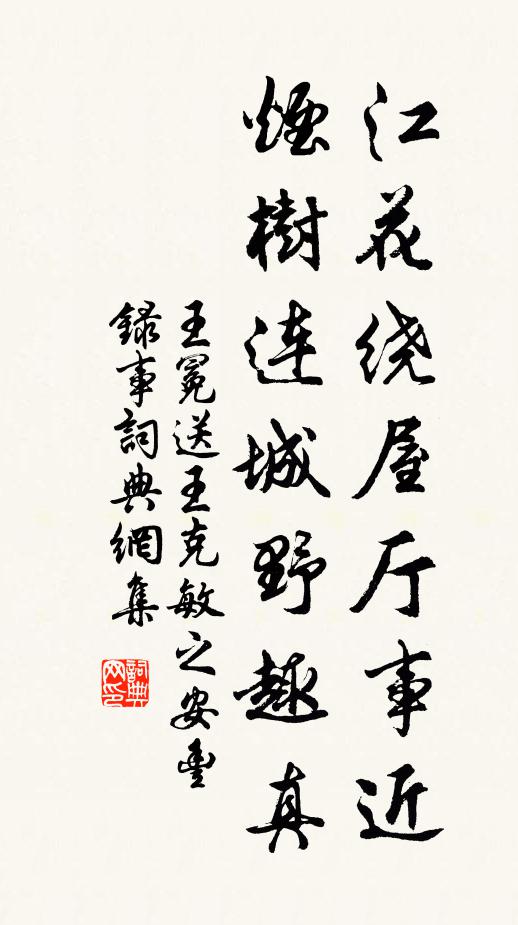 江花绕屋厅事近
煙樹連城野趣真
王冕送王克敏之安豐
錄事詞典網集
詞典网印